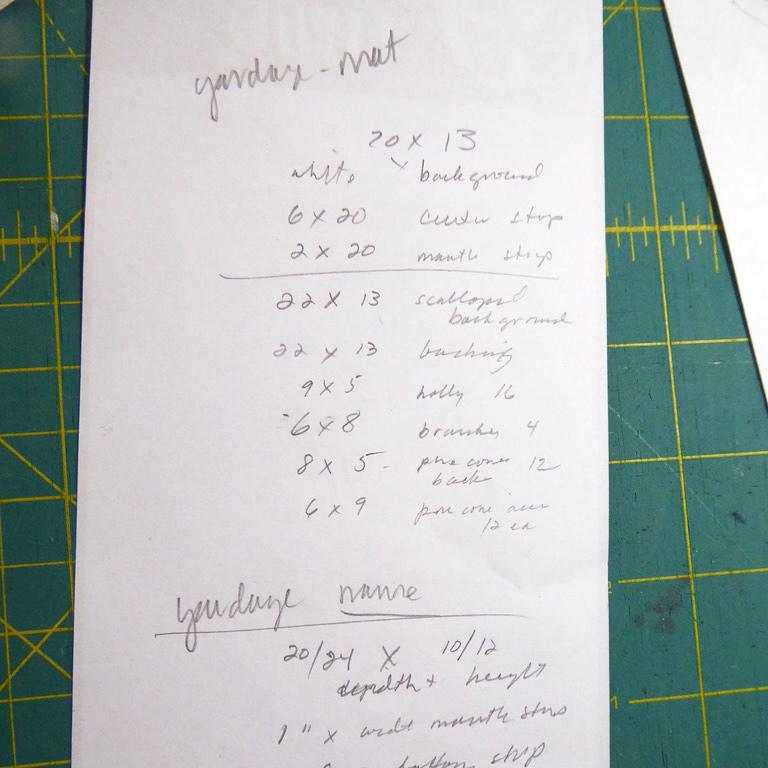 yardage - mat
20 x 13
white background
6 x 20 center strip
2 x 20 mantle strip
22 x 13 scalloped
background
22 x 13 backing
9 x 5 holly 16
6 x 8 branches 4
8 x 5 - pine cones 12
backs
6 x 9 pine cone
12 ea
yardage name
20/24 x 10/12
depth + height
1" x mantle strip
bottom strip